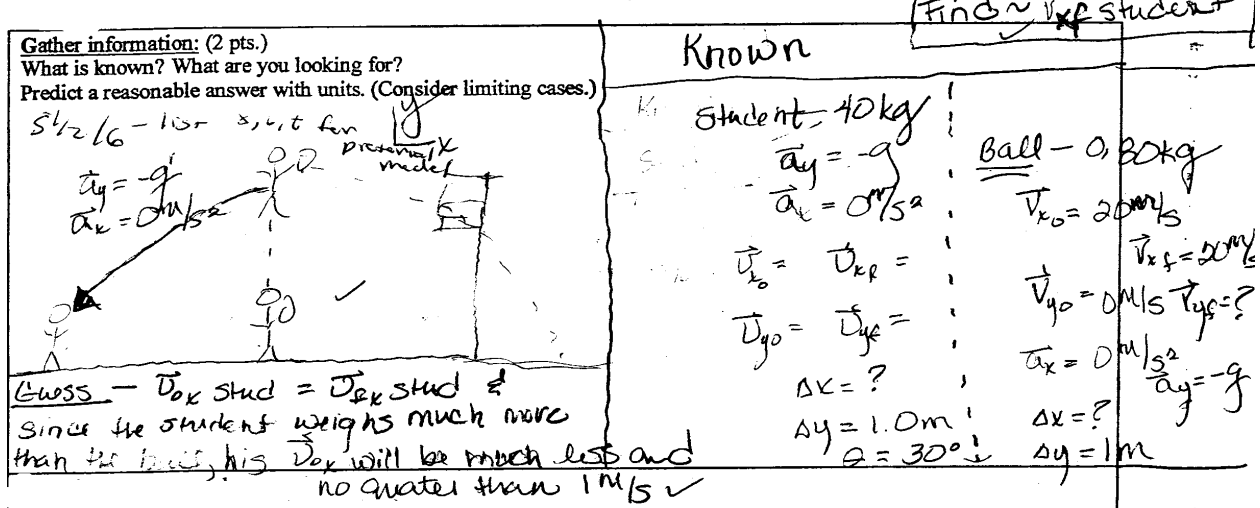 Find ~ Vxf student
Gather information: (2 pts.)
What is known? What are you looking for?
Predict a reasonable answer with units. (Consider limiting cases.)
y
x
model
ay = -g
ax = 0 m/s²
Guess - Vox stud = Vfx stud &
since the student weighs much more
than the ball, his Vox will be much less and
no greater than 1 m/s
Known
Student - 40kg
ay = -g
ax = 0 m/s²
Vxo = Vxf =
Vyo = Vyf =
Δx = ?
Δy = 1.0m
θ = 30°
Ball - 0.80kg
Vxo = 20 m/s
Vxf = 20 m/s
Vyo = 0 m/s Vyf = ?
ax = 0 m/s²
ay = -g
Δx = ?
Δy = 1m